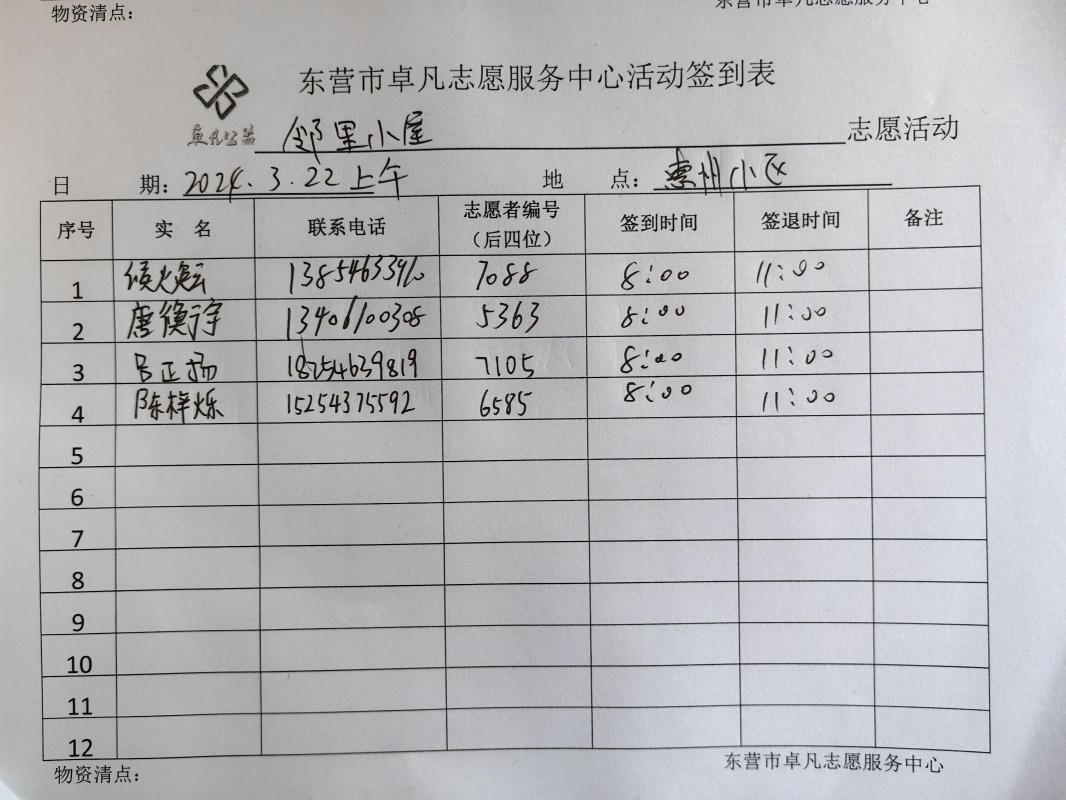 物资清点：
东营市卓凡志愿服务中心
东营市卓凡志愿服务中心活动签到表
卓凡公益
邻里小屋 志愿活动
日 期：2024.3.22上午 地 点：惠州小区
序号 实 名 联系电话 志愿者编号（后四位） 签到时间 签退时间 备注
1 7088 8:00 11:00
2 唐衡宇 13406100308 5363 8:00 11:00
3 吕正扬 18254639819 7105 8:00 11:00
4 陈梓烁 15254375592 6585 8:00 11:00
5
6
7
8
9
10
11
12
物资清点： 东营市卓凡志愿服务中心